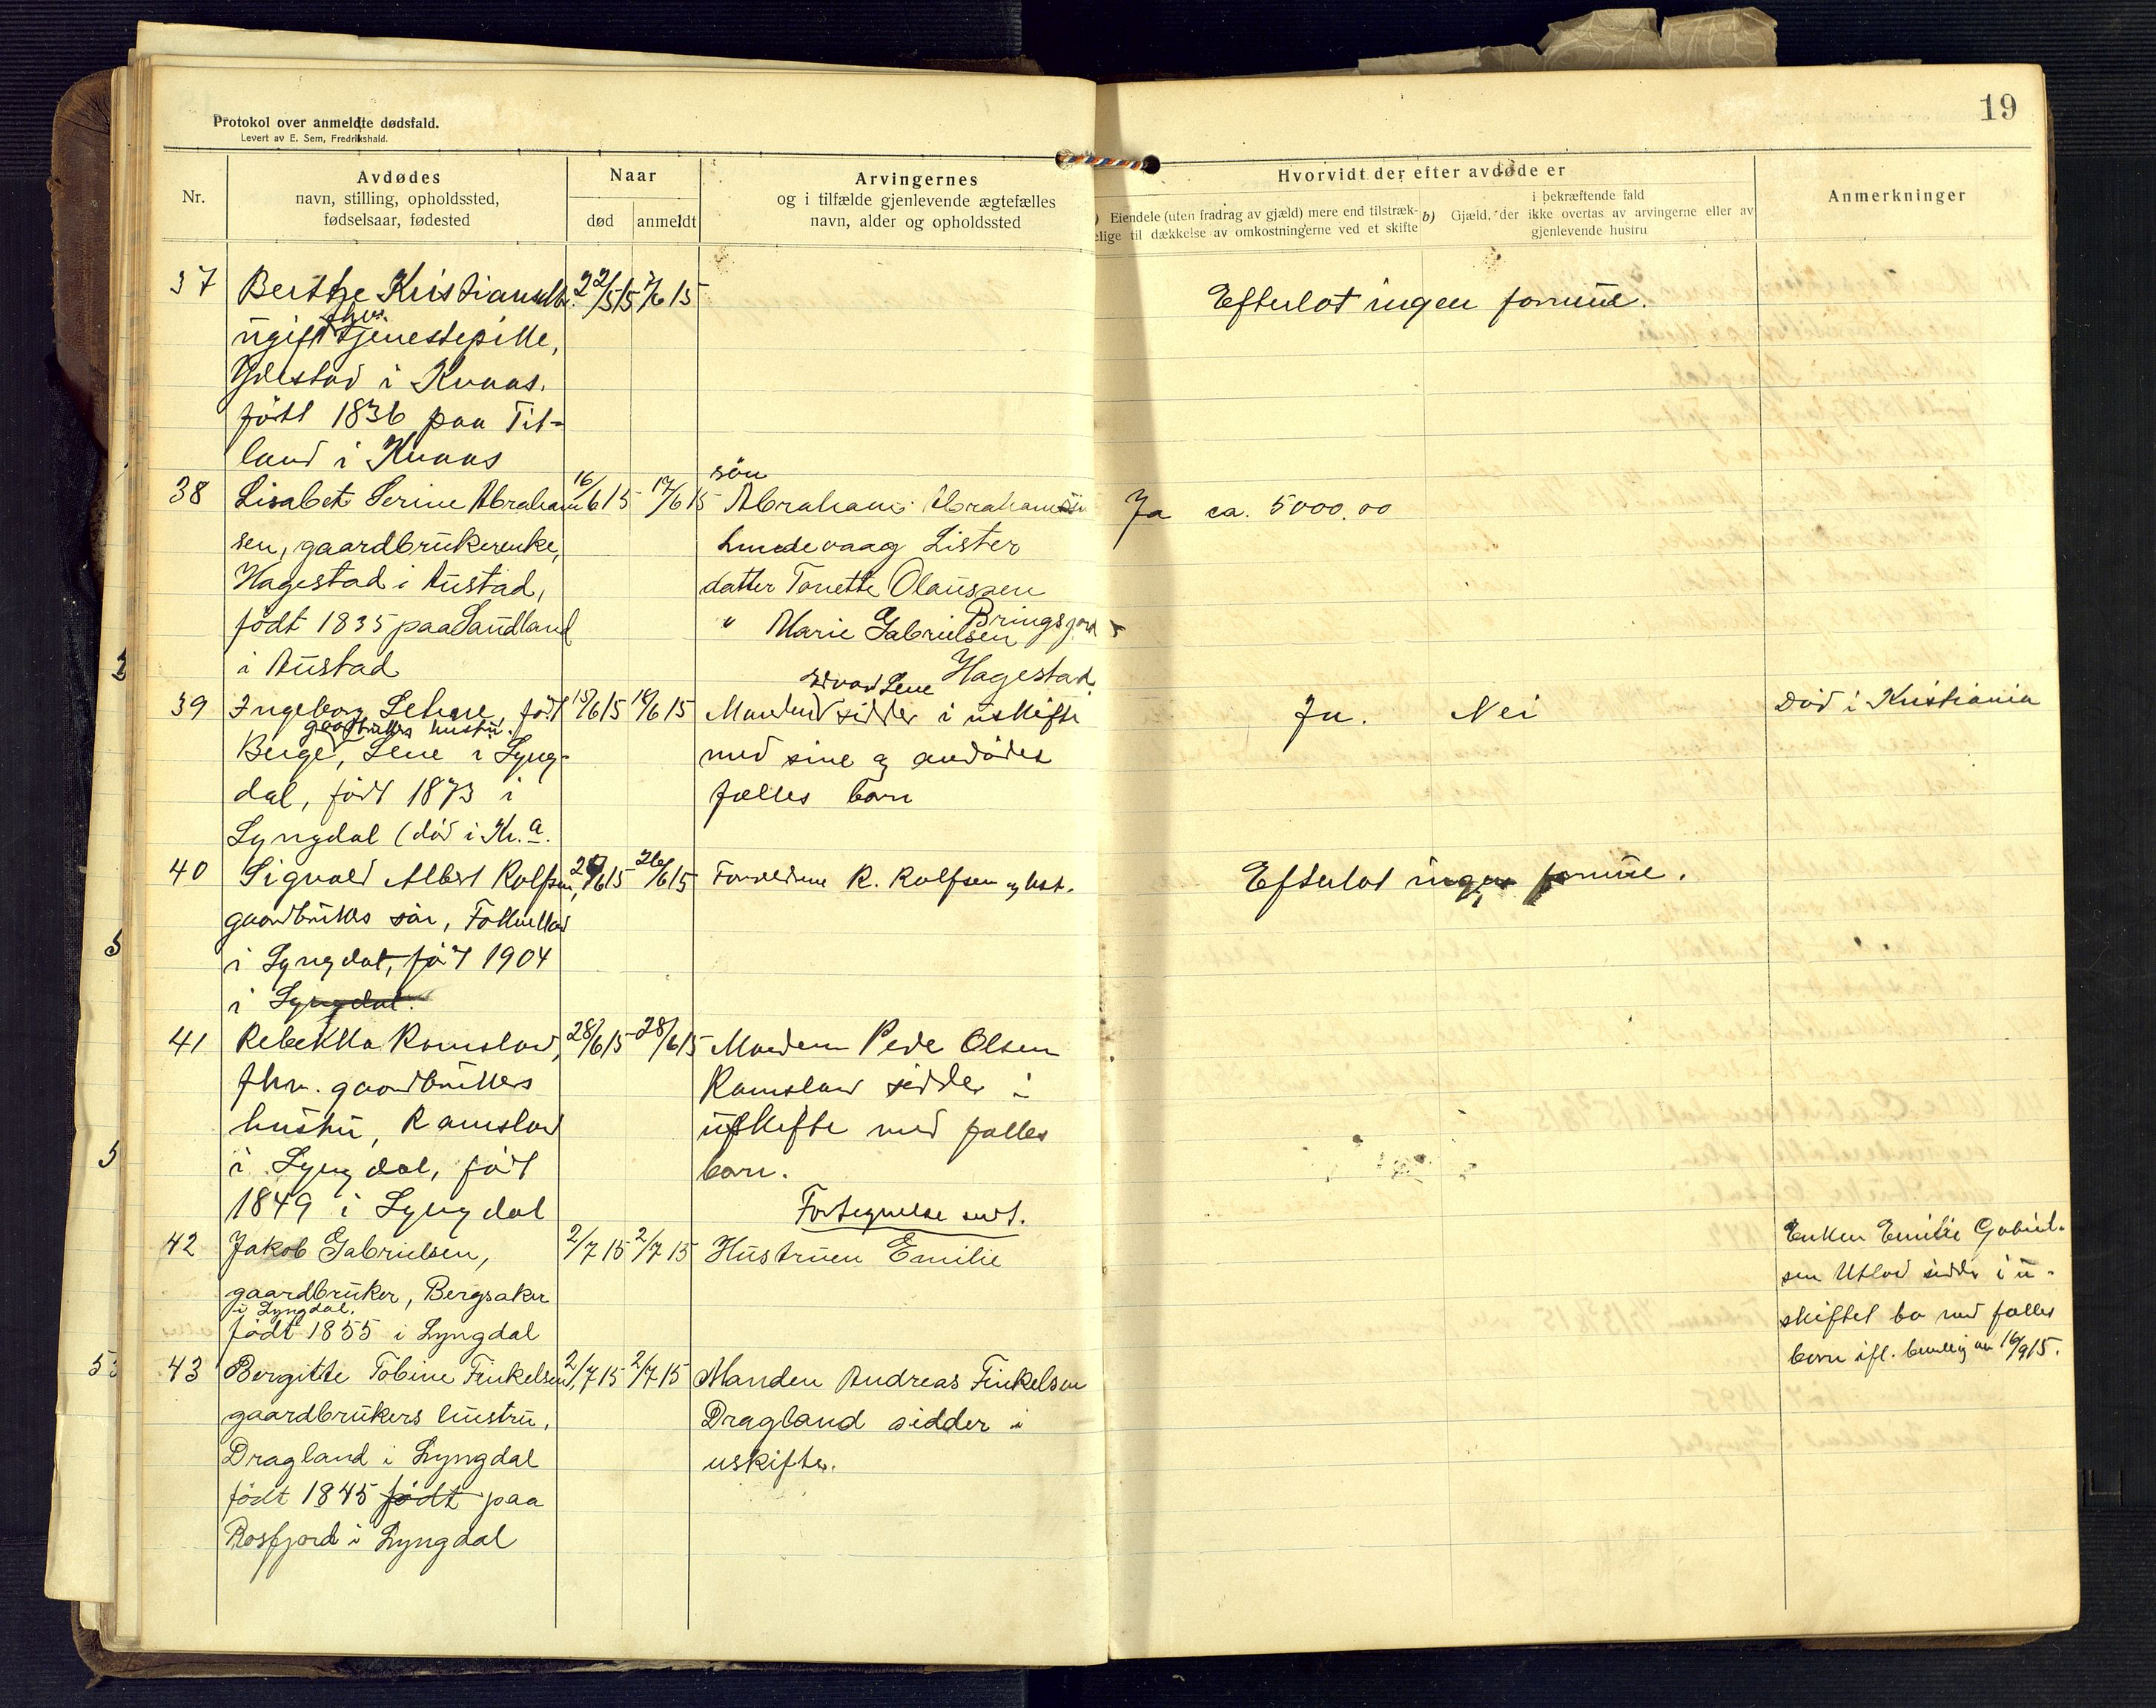 Protokol over anmeldte dødsfald.
Levert av E. Sem, Fredrikshald.
19
Nr.
Avdødes
navn, stilling, opholdssted,
fødselsaar, fødested
Naar
død
anmeldt
Arvingernes
og i tilfælde gjenlevende ægtefælles
navn, alder og opholdssted
Hvorvidt der efter avdøde er
) Eiendele (uten fradrag av gjæld) mere end tilstræk-
elige til dækkelse av omkostningerne ved et skifte
b) Gjæld, der
i bekræftende fald
ikke overtas av arvingerne eller av
gjenlevende hustru
Anmerkninger
37 Berthe Kristiansdtr. 22/5 15 /6 15 Efterlot ingen formue.
fhv.
ugift tjenestepike,
i Kvaas.
født 1836 paa Tit-
land i Kvaas
søn
38 Lisabet Serine Abraham 16/6 15 17/6 15 Abraham Abrahamsen Ja ca. 5000.00
sen, gaardbrukerenke, Lundevaag Lister
Hagestad i Austad, datter Tonette Olaussen
født 1835 paa Sandland Bringsjord
i Austad " Marie Gabrielsen
Hagestad
39 Ingeborg født 15/6 15 18/6 15 Manden sidder i uskifte Ja. Nei Død i Kristiania
gaardbrukers hustru.
Berge, Lene i Lyng- med sine og avdødes
dal, født 1873 i fælles barn
Lyngdal (død i Kr.a.
40 Sigvald Albert Rolfsen, /6 15 26/6 15 Forældrene R. Rolfsen og hst. Efterlot ingen formue.
gaardbrukers søn,
i Lyngdal, født 1904
i Lyngdal.
41 Rebekka Ramsland, 28/6 15 28/6 15 Manden Peder Olsen
fhv. gaardbrukers Ramsland sidder i
hustru, Ramsland uskifte med fælles
i Lyngdal, født barn.
1849 i Lyngdal Fortegnelse
42 Jakob Gabrielsen, 2/7 15 2/7 15 Hustruen Emilie
gaardbruker, Bergsaker
i Lyngdal.
født 1855 i Lyngdal
Enken Emilie Gabriel-
sen sidder i u-
skiftet bo med fælles
barn ifl. bevillig av 16/9 15.
43 Bergitte Tobine Finkelsen, 2/7 15 2/7 15 Manden Andreas Finkelsen
gaardbrukers hustru, Dragland sidder i
Dragland i Lyngdal uskifte.
født 1845 født paa
Rosfjord i Lyngdal